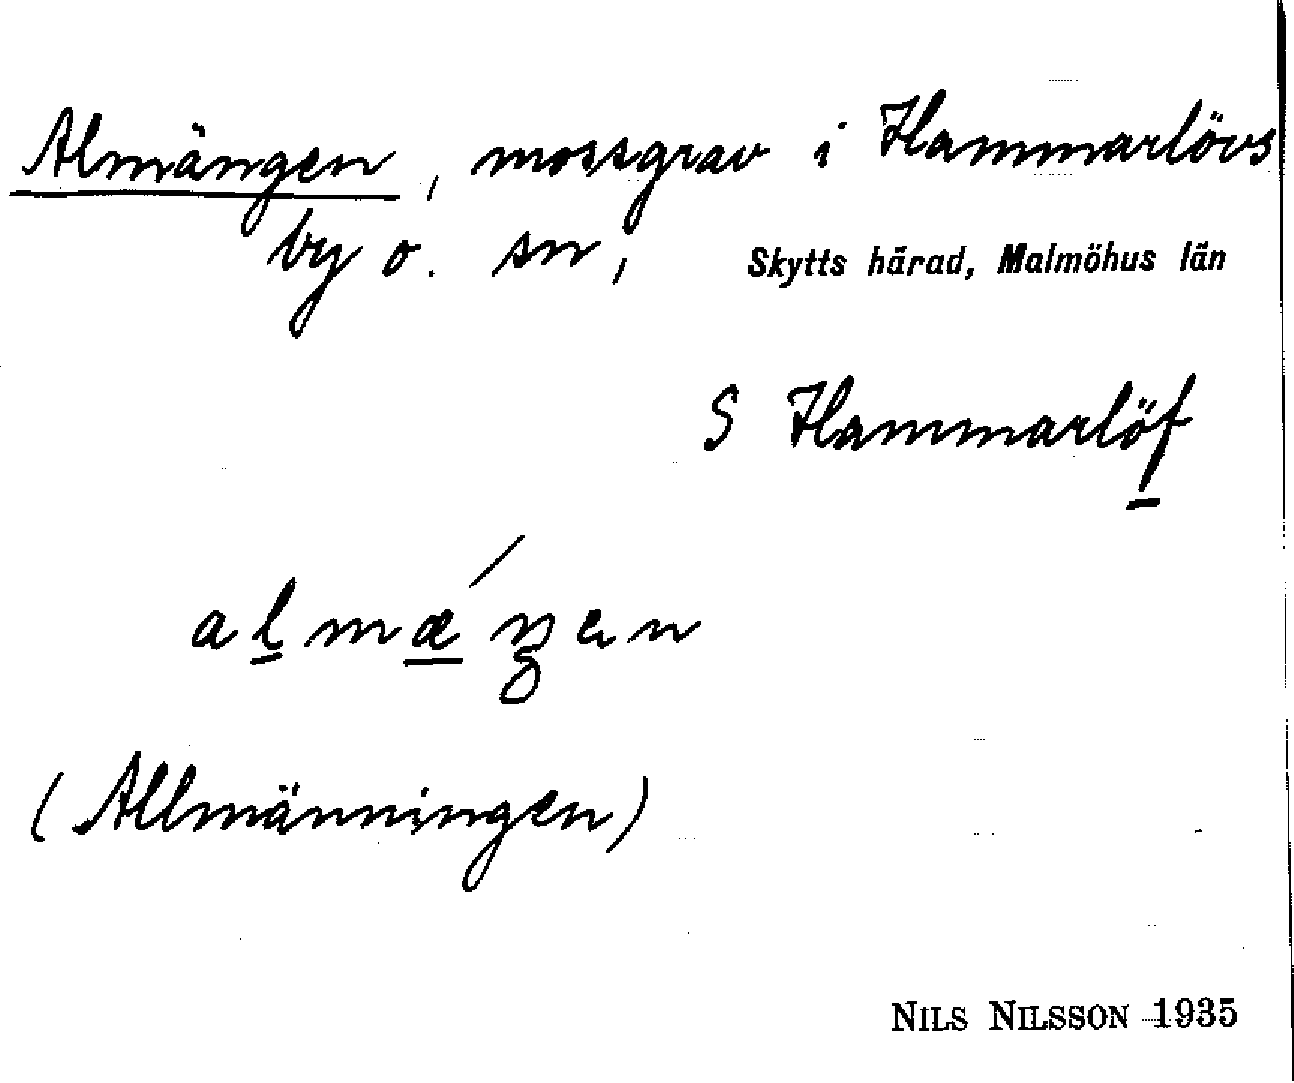 Almängen, mossgrav i Hammarlövs
by o. sn, Skytts härad, Malmöhus län
S Hammarlöf
(Allmänningen)
NILS NILSSON 1935